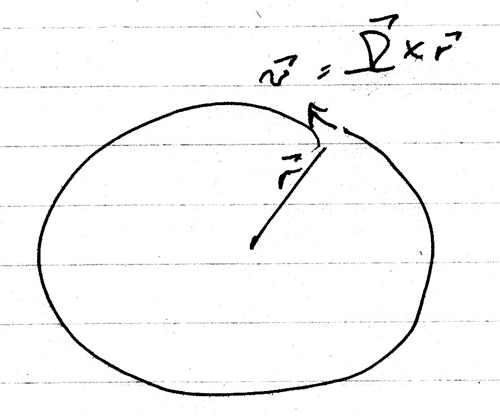 v⃗ = Ω⃗ × r⃗
r⃗